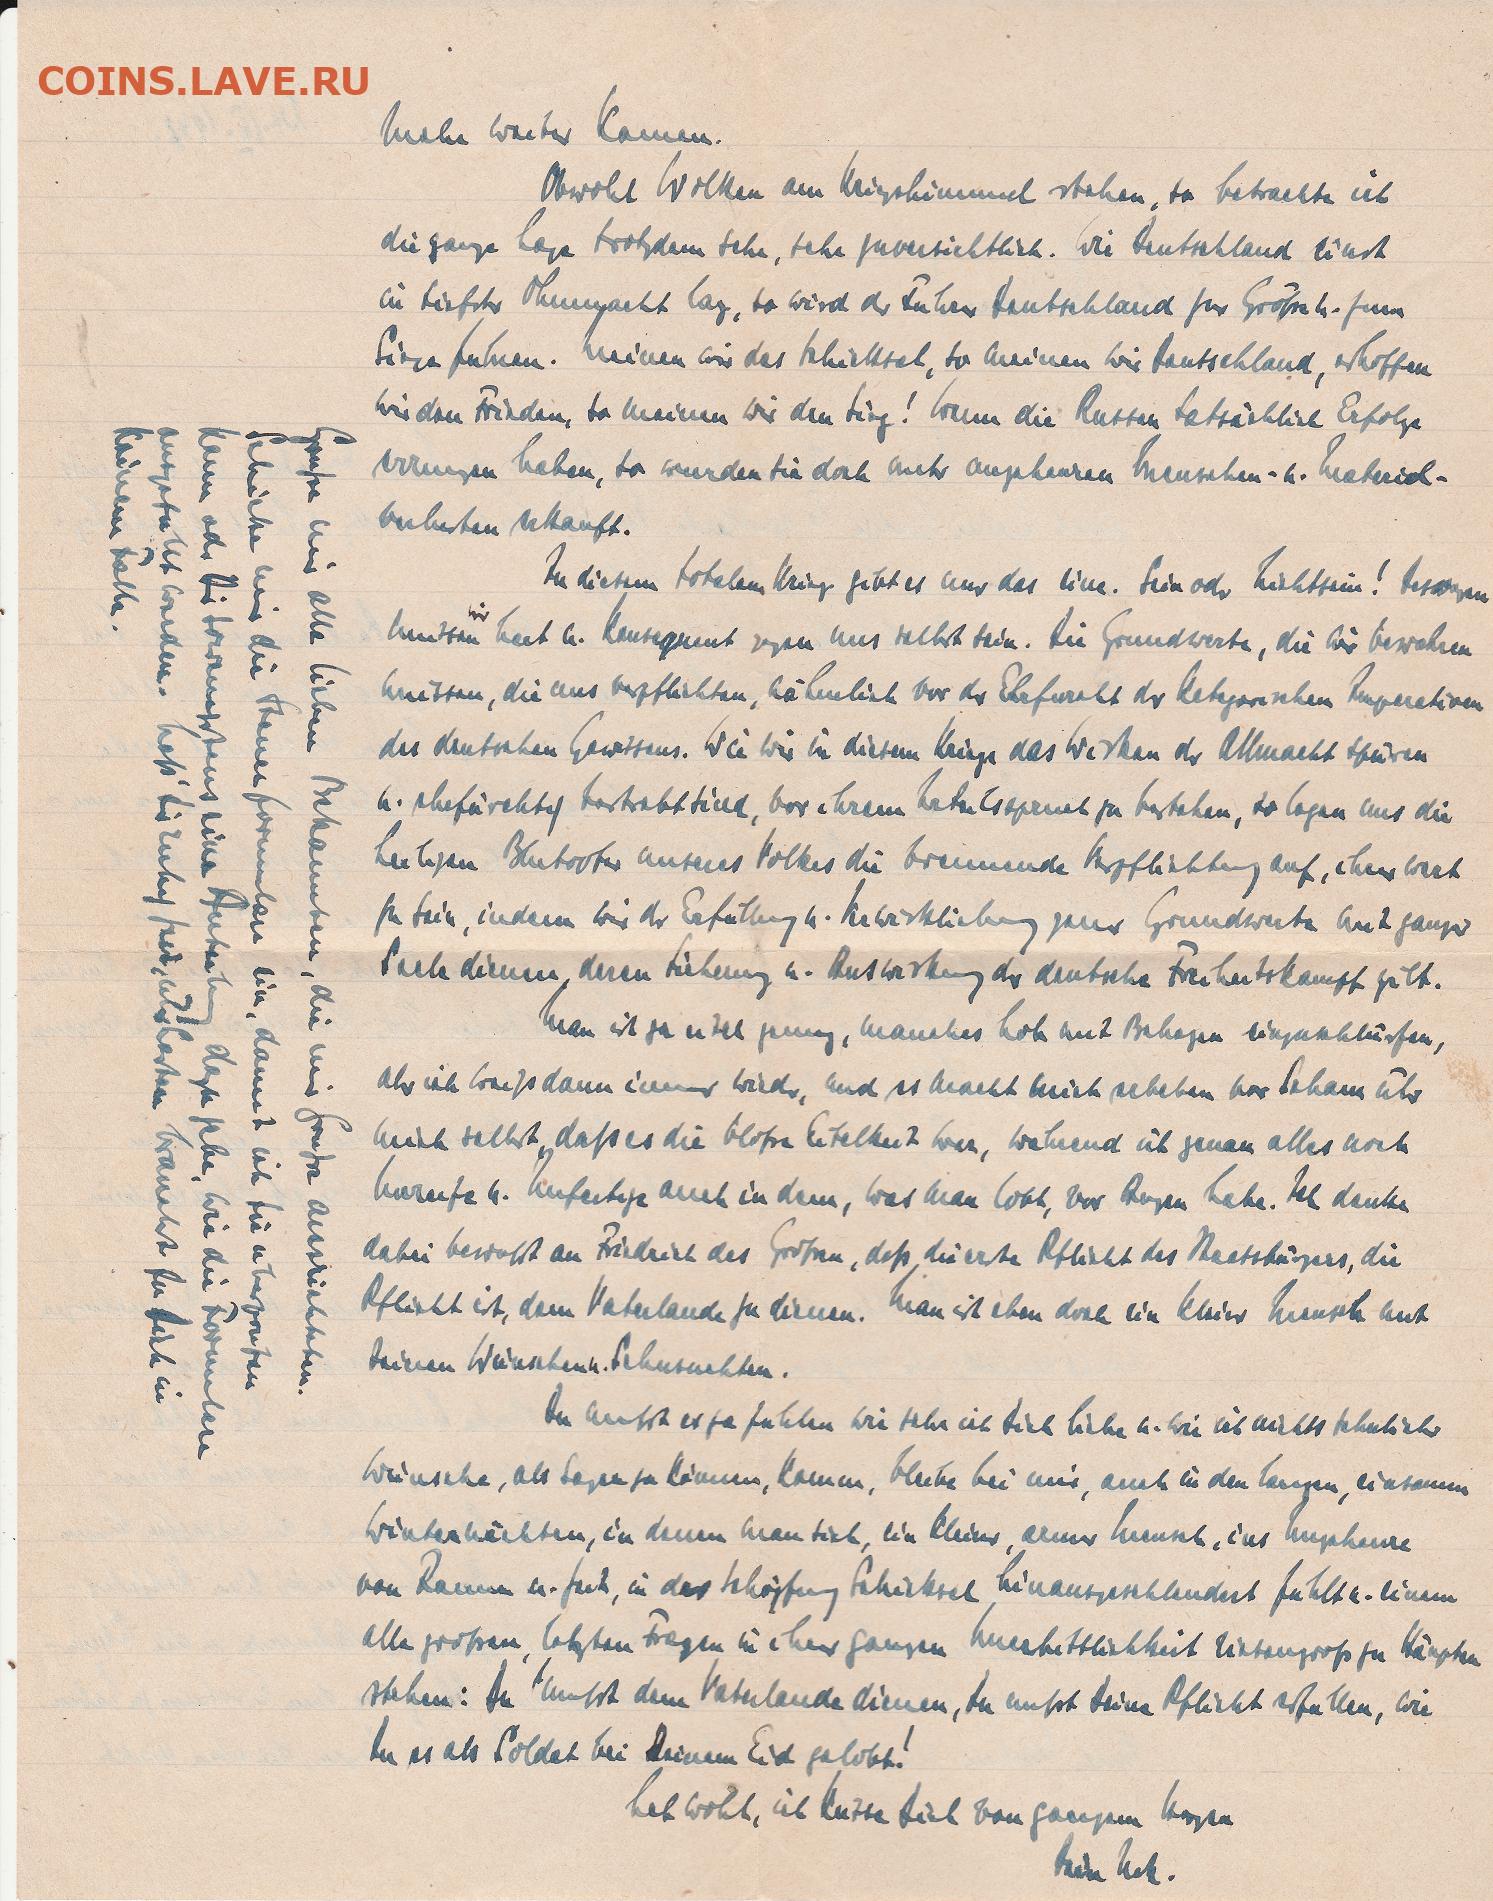 COINS.LAVE.RU
mehr weiter kamen.
Obwohl Wolken am Kriegshimmel stehen, so betrachte ich
die ganze Lage trotzdem sehr, sehr zuversichtlich. Wie Deutschland einst
in tiefster Ohnmacht lag, so wird der Führer Deutschland zur Größe u. zum
Siege führen. Meinen wir das Schicksal, so meinen wir Deutschland, erhoffen
wir den Frieden, so meinen wir den Sieg! Wenn die Russen tatsächlich Erfolge
errungen haben, so wurden sie doch unter ungeheuren Menschen- u. Material-
verlusten erkauft.
In diesem totalen Krieg gibt es nur das eine. Sein oder Nichtsein! Deswegen
müssen wir hart u. konsequent gegen uns selbst sein. Die Grundwerte, die wir bewahren
müssen, die uns verpflichten, nähmlich vor der Ehrfurcht der kategorischen Imperativen
des deutschen Gewissens. Wie wir in diesem Kriege das Wirken der Allmacht spüren
u. ehrfürchtig bestrebt sind, vor ihrem Urteilsspruch zu bestehen, so legen uns die
heiligen Blutopfer unseres Volkes die brennende Verpflichtung auf, ihrer wert
zu sein, indem wir der Erfüllung u. Verwirklichung jener Grundwerte mit ganzer
Seele dienen, deren Sicherung u. Auswirkung der deutsche Freiheitskampf gilt.
Man ist ja eitel genug, manches Lob mit Behagen einzuschlürfen,
aber ich weiß dann immer wieder, und es macht mich erbeben vor Scham über
mich selbst, daß es die bloße Eitelkeit war, während ich genau alles noch
Unreife u. Unfertige auch in dem, was man lobt, vor Augen habe. Ich denke
dabei bewußt an Friedrich des Großen, daß die erste Pflicht des Staatsbürgers, die
Pflicht ist, dem Vaterlande zu dienen. Man ist eben doch ein kleiner Mensch mit
seinen Wünschen u. Sehnsuchten.
Du mußt es ja fühlen wie sehr ich Dich liebe u. wie ich nichts sehnlicher
wünsche, als sagen zu können, komm, bleibe bei mir, auch in den langen, einsamen
Winternächten, in denen man sich, ein kleiner, armer Mensch, ins Ungeheure
von Raum u. Zeit, in das Schöpfung Schicksal hinausgeschleudert fühlt u. einem
alle großen, letzten Fragen in ihrer ganzen Unerbittlichkeit riesengroß zu Häupten
stehen: Du mußt dem Vaterlande dienen, Du mußt Deine Pflicht erfüllen, wie
Du es als Soldat bei Deinem Eid gelobt!
Leb wohl, ich küsse Dich von ganzem Herzen
Dein
Grüße mir alle lieben Bekannten, die mir Grüße ausrichteten.
Schicke mir die Steuerformulare ein, damit ich sie überprüfen
kann oder Dir wenigstens eine Anleitung dazu gebe, wie die Formulare
ausgefüllt werden. Laß Dir ruhig Zeit, hasten brauchst Du Dich in
keinem Falle.